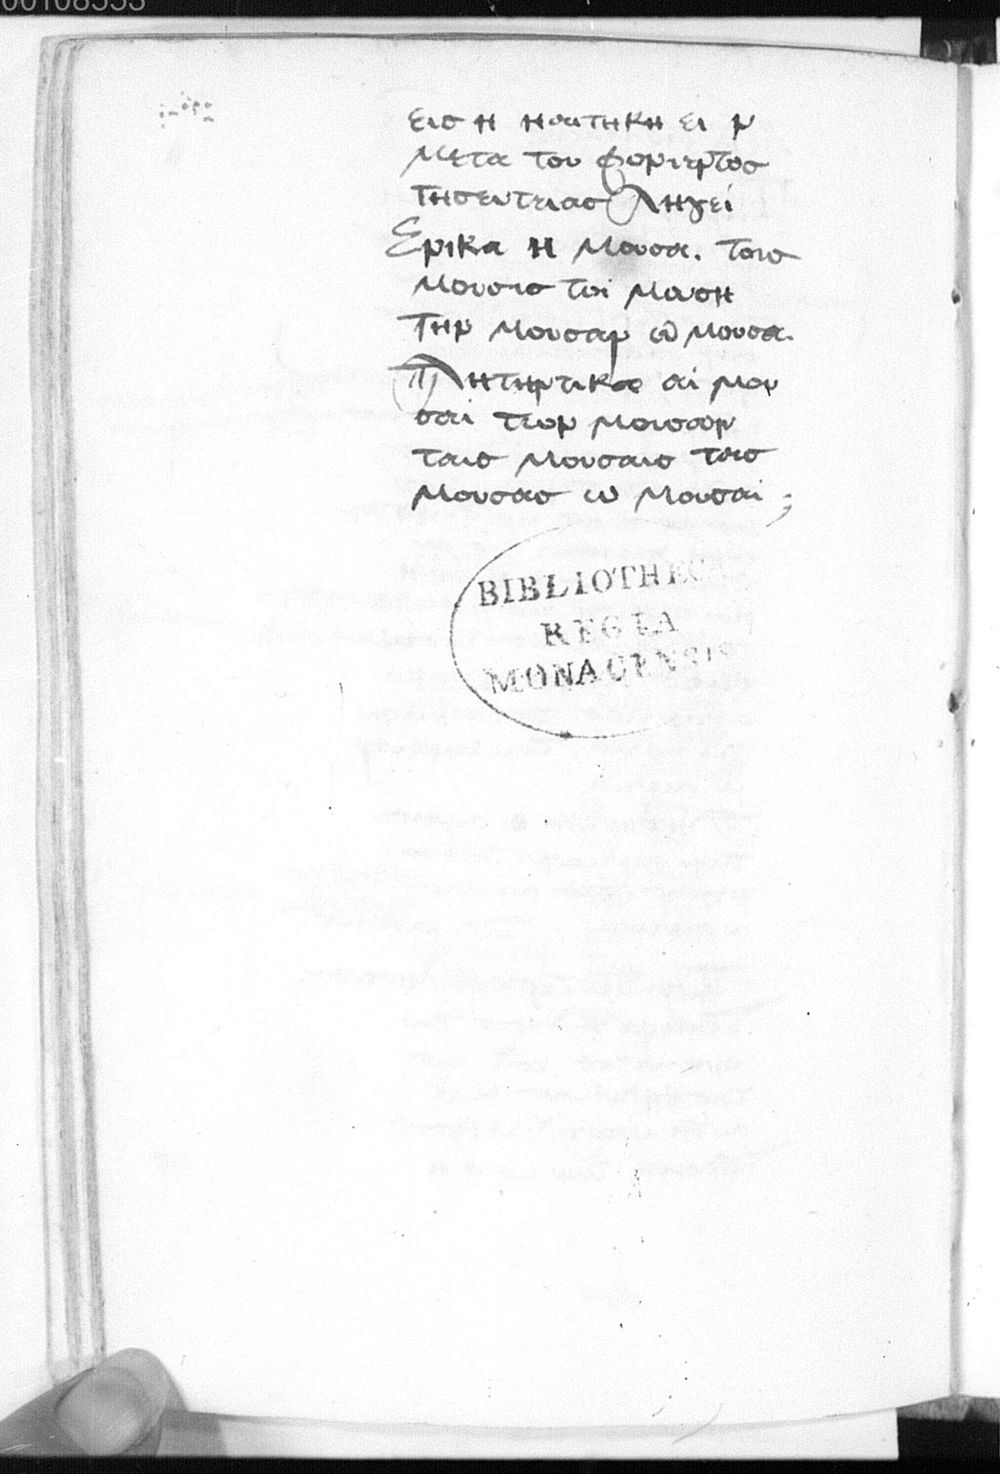 00108553
εισ η η αιτηκη ει ν
μετα του φονιεντοσ
τησευτειασ ληγει
Ερικα η μουσα. τοισ
μουσισ τοι μουση
την μουσαν ω μουσα.
Πλητηντικοσ αι μου
σαι τεων μοισσων
ταισ μουσαισ τασ
μουσασ ω μουσαι ;
BIBLIOTHECA
REGIA
MONACENSIS